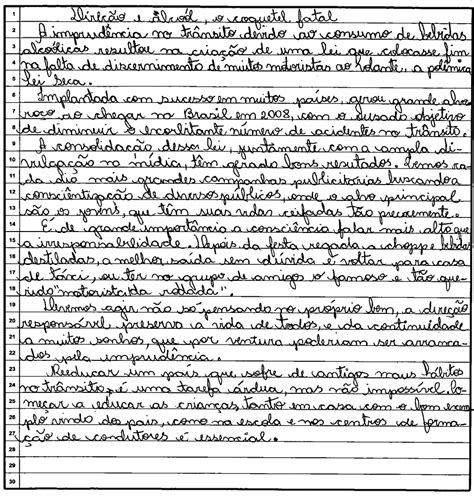 Direção e Álcool, o coquetel fatal
1
2 A imprudência no trânsito devido ao consumo de bebidas
3 alcoólicas resultou na criação de uma lei que colocasse fim
4 na falta de discernimento de muitos motoristas ao volante, a polêmica
5 lei seca.
6 Implantada com sucesso em muitos países, gerou grande alvo-
7 roço ao chegar no Brasil em 2008, com o ousado objetivo
8 de diminuir o exorbitante número de acidentes no trânsito.
9 A consolidação dessa lei, juntamente com a ampla di-
10 vulgação na mídia, têm gerado bons resultados. Temos ca-
11 da dia mais grandes campanhas publicitárias buscando a
12 conscientização de diversos públicos, onde o alvo principal
13 são os jovens, que têm suas vidas ceifadas tão precocemente.
14 É de grande importância a consciência falar mais alto que
15 a irresponsabilidade. Depois da festa regada a chopp e bebidas
16 destiladas, a melhor saída sem dúvida é voltar para casa
17 de táxi, ou ter no grupo de amigos o famoso e tão que-
18 rido "motorista da rodada".
19 Devemos agir não só pensando no próprio bem, a direção
20 responsável preserva a vida de todos, e da continuidade
21 a muitos sonhos, que por ventura poderiam ser arranca-
22 dos pela imprudência.
23 Reeducar um país que sofre de antigos maus hábitos
24 no trânsito, é uma tarefa árdua, mas não impossível. Co-
25 meçar a educar as crianças, tanto em casa com o bom exem-
26 plo vindo dos pais, como na escola e nos centros de forma-
27 ção de condutores é essencial.
28
29
30